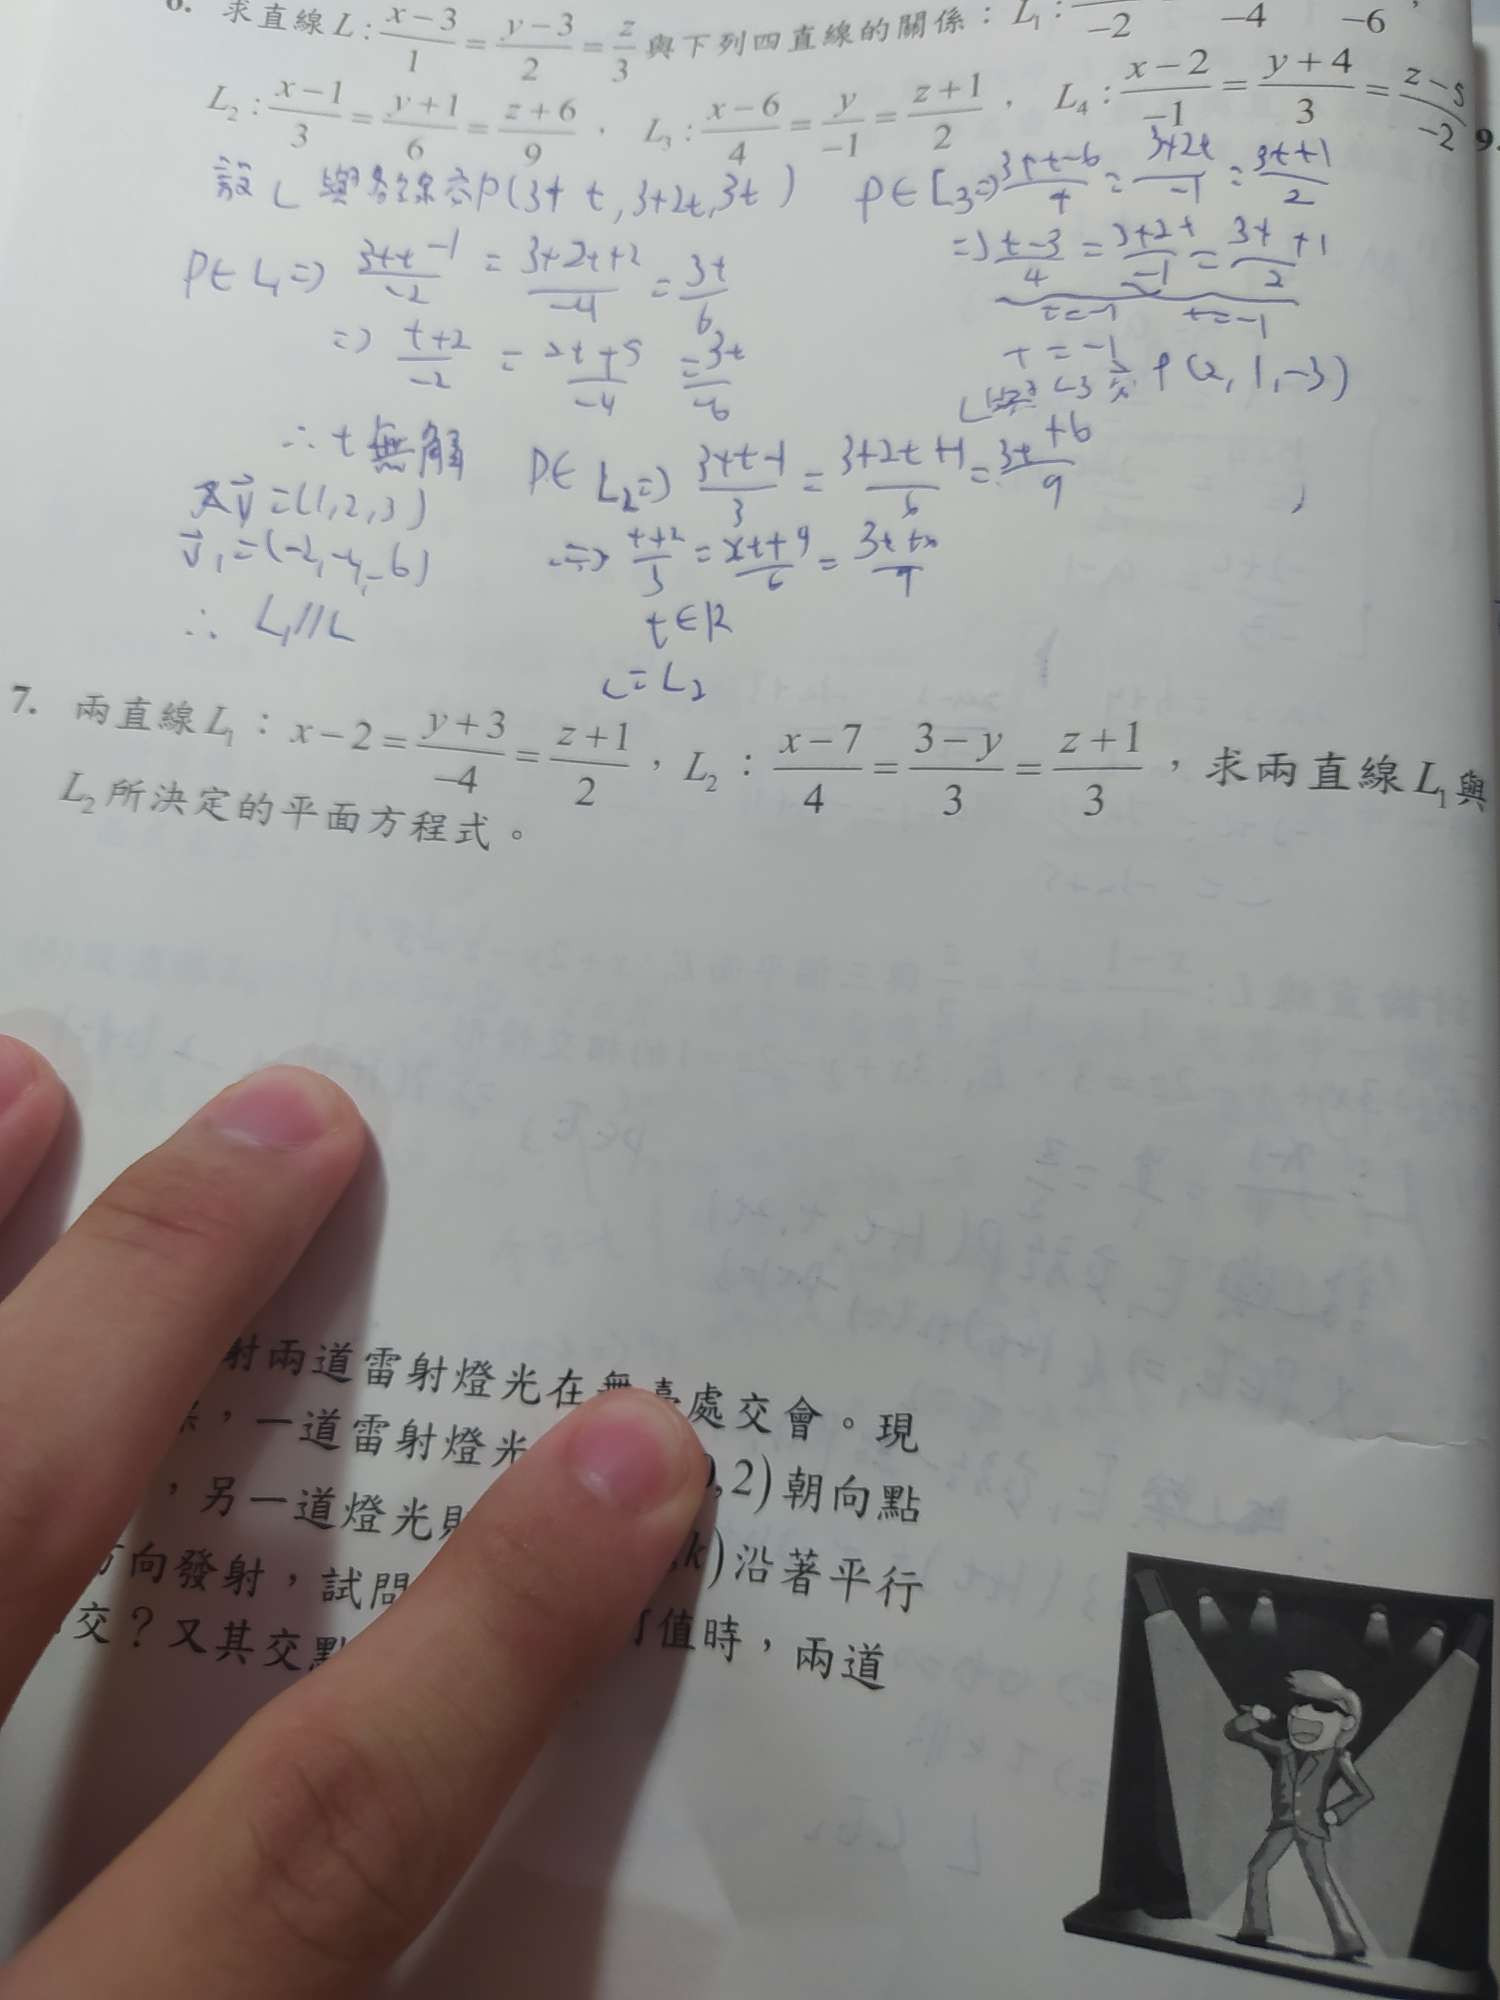 求直線L:\frac{x-3}{1}=\frac{y-3}{2}=\frac{z}{3}與下列四直線的關係：L₁:
-2 -4 -6
L₂:\frac{x-1}{3}=\frac{y+1}{6}=\frac{z+6}{9}，L₃:\frac{x-6}{4}=\frac{y}{-1}=\frac{z+1}{2}，L₄:\frac{x-2}{-1}=\frac{y+4}{3}=\frac{z-5}{-2}
9.
設L與各線交P(3+t,3+2t,3t)
P∈L₁⇒\frac{3+t-1}{-2}=\frac{3+2t+2}{-4}=\frac{3t}{6}
⇒\frac{t+2}{-2}=\frac{2t+5}{-4}=\frac{3t}{-6}
∴t無解
又v⃗=(1,2,3)
v⃗₁=(-2,-4,-6)
∴L₁//L
P∈L₂⇒\frac{3+t-1}{3}=\frac{3+2t+1}{6}=\frac{3t+6}{9}
t∈R
L=L₂
P∈L₃⇒\frac{3+t-6}{4}=\frac{3+2t}{-1}=\frac{3t+1}{2}
⇒\frac{t-3}{4}=\frac{3+2t}{-1}=\frac{3t+1}{2}
t=-1 t=-1
t=-1
L與L₃交P(2,1,-3)
7. 兩直線L₁：x-2=\frac{y+3}{-4}=\frac{z+1}{2}，L₂：\frac{x-7}{4}=\frac{3-y}{3}=\frac{z+1}{3}，求兩直線L₁與
L₂所決定的平面方程式。
射兩道雷射燈光在 處交會。現
，一道雷射燈光 ,2)朝向點
，另一道燈光則 ,k)沿著平行
方向發射，試問 值時，兩道
交？又其交點